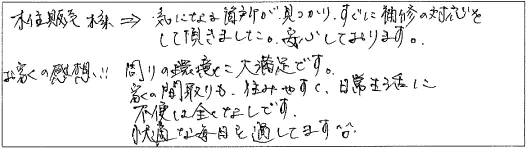 住販売 様 ⇒ 気になる箇所が見つかり、すぐに補修の対応を
して頂きました。安心しております。
お家の感想!! 周りの環境に大満足です。
家の間取りも、住みやすく、日常生活に
不便は全くなしです。
快適な毎日を過してます^^